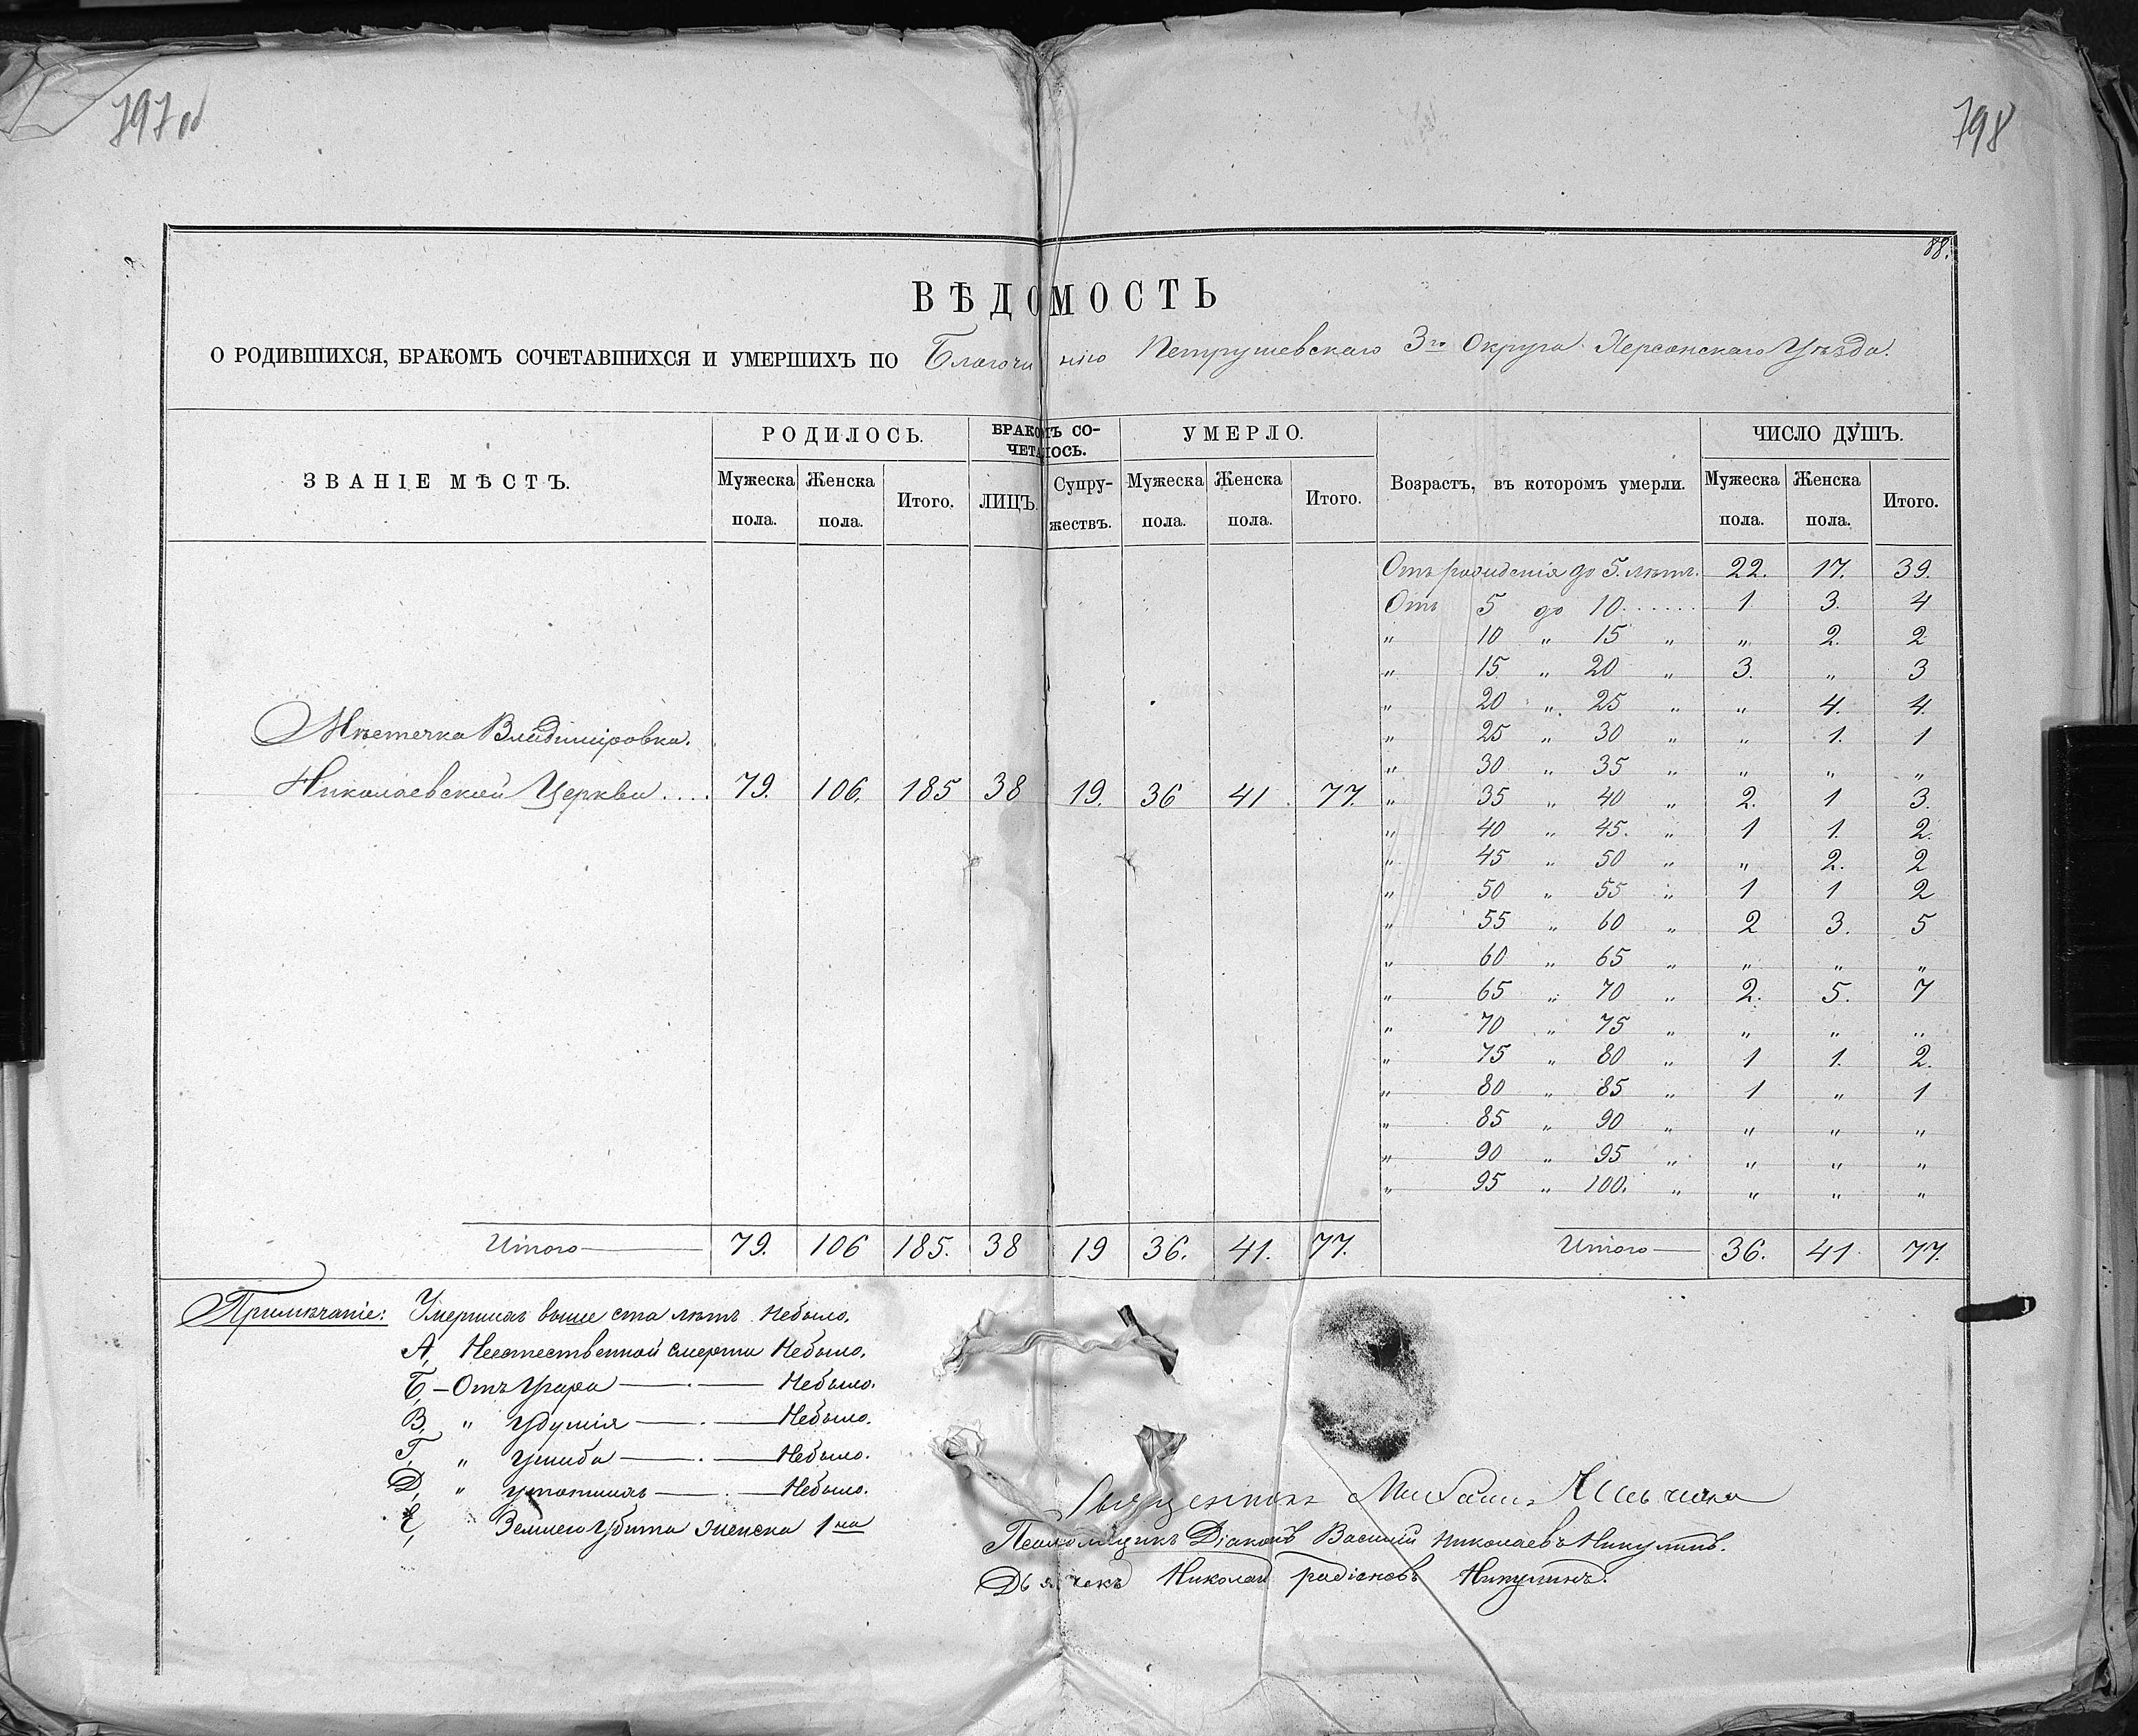 797об
798
88.
ВѢДОМОСТЬ
О РОДИВШИХСЯ, БРАКОМЪ СОЧЕТАВШИХСЯ И УМЕРШИХЪ ПО Благочинію Петрушевскаго 3го Округа Херсонскаго Уѣзда.
ЗВАНІЕ МѢСТЪ. РОДИЛОСЬ. БРАКОМЪ СОЧЕТАЛОСЬ. УМЕРЛО. Возрастъ, въ которомъ умерли. ЧИСЛО ДУШЪ.
Мужеска пола. Женска пола. Итого. ЛИЦЪ. Супружествъ. Мужеска пола. Женска пола. Итого. Мужеска пола. Женска пола. Итого.
Мѣстечка Владиміровка.
Николаевской Церкви.... 79. 106. 185 38 19. 36 41. 77.
Отъ рожденія до 5. лѣтъ. 22. 17. 39.
Отъ 5 до 10....... 1. 3. 4
„ 10 „ 15 „ „ 2. 2
„ 15 „ 20 „ 3. „ 3
„ 20 „ 25 „ „ 4. 4.
„ 25 „ 30 „ „ 1. 1
„ 30 „ 35 „ „ „ „
„ 35 „ 40 „ 2. 1 3.
„ 40 „ 45. „ 1 1. 2.
„ 45 „ 50 „ „ 2. 2
„ 50 „ 55 „ 1 1 2
„ 55 „ 60 „ 2 3. 5
„ 60 „ 65 „ „ „ „
„ 65 „ 70 „ 2. 5. 7
„ 70 „ 75 „ „ „ „
„ 75 „ 80 „ 1 1. 2.
„ 80 „ 85 „ 1 „ 1
„ 85 „ 90 „ „ „ „
„ 90 „ 95 „ „ „ „
„ 95 „ 100. „ „ „ „
Итого — 79. 106 185. 38 19 36. 41. 77.
Итого — 36. 41 77.
Примѣчаніе: Умершихъ выше ста лѣтъ небыло.
А, Неестественной смерти Небыло.
Б, — Отъ Угара — Небыло.
В, „ Удушія — Небыло.
Г, „ Ушиба — Небыло.
Д, „ утопшихъ — Небыло.
Е, Землею Убита женска 1на
Священникъ Михаилъ
Псаломщикъ Діаконъ Василій Николаевъ Никулинъ.
Дьячекъ Николай Радіоновъ Никулинъ.